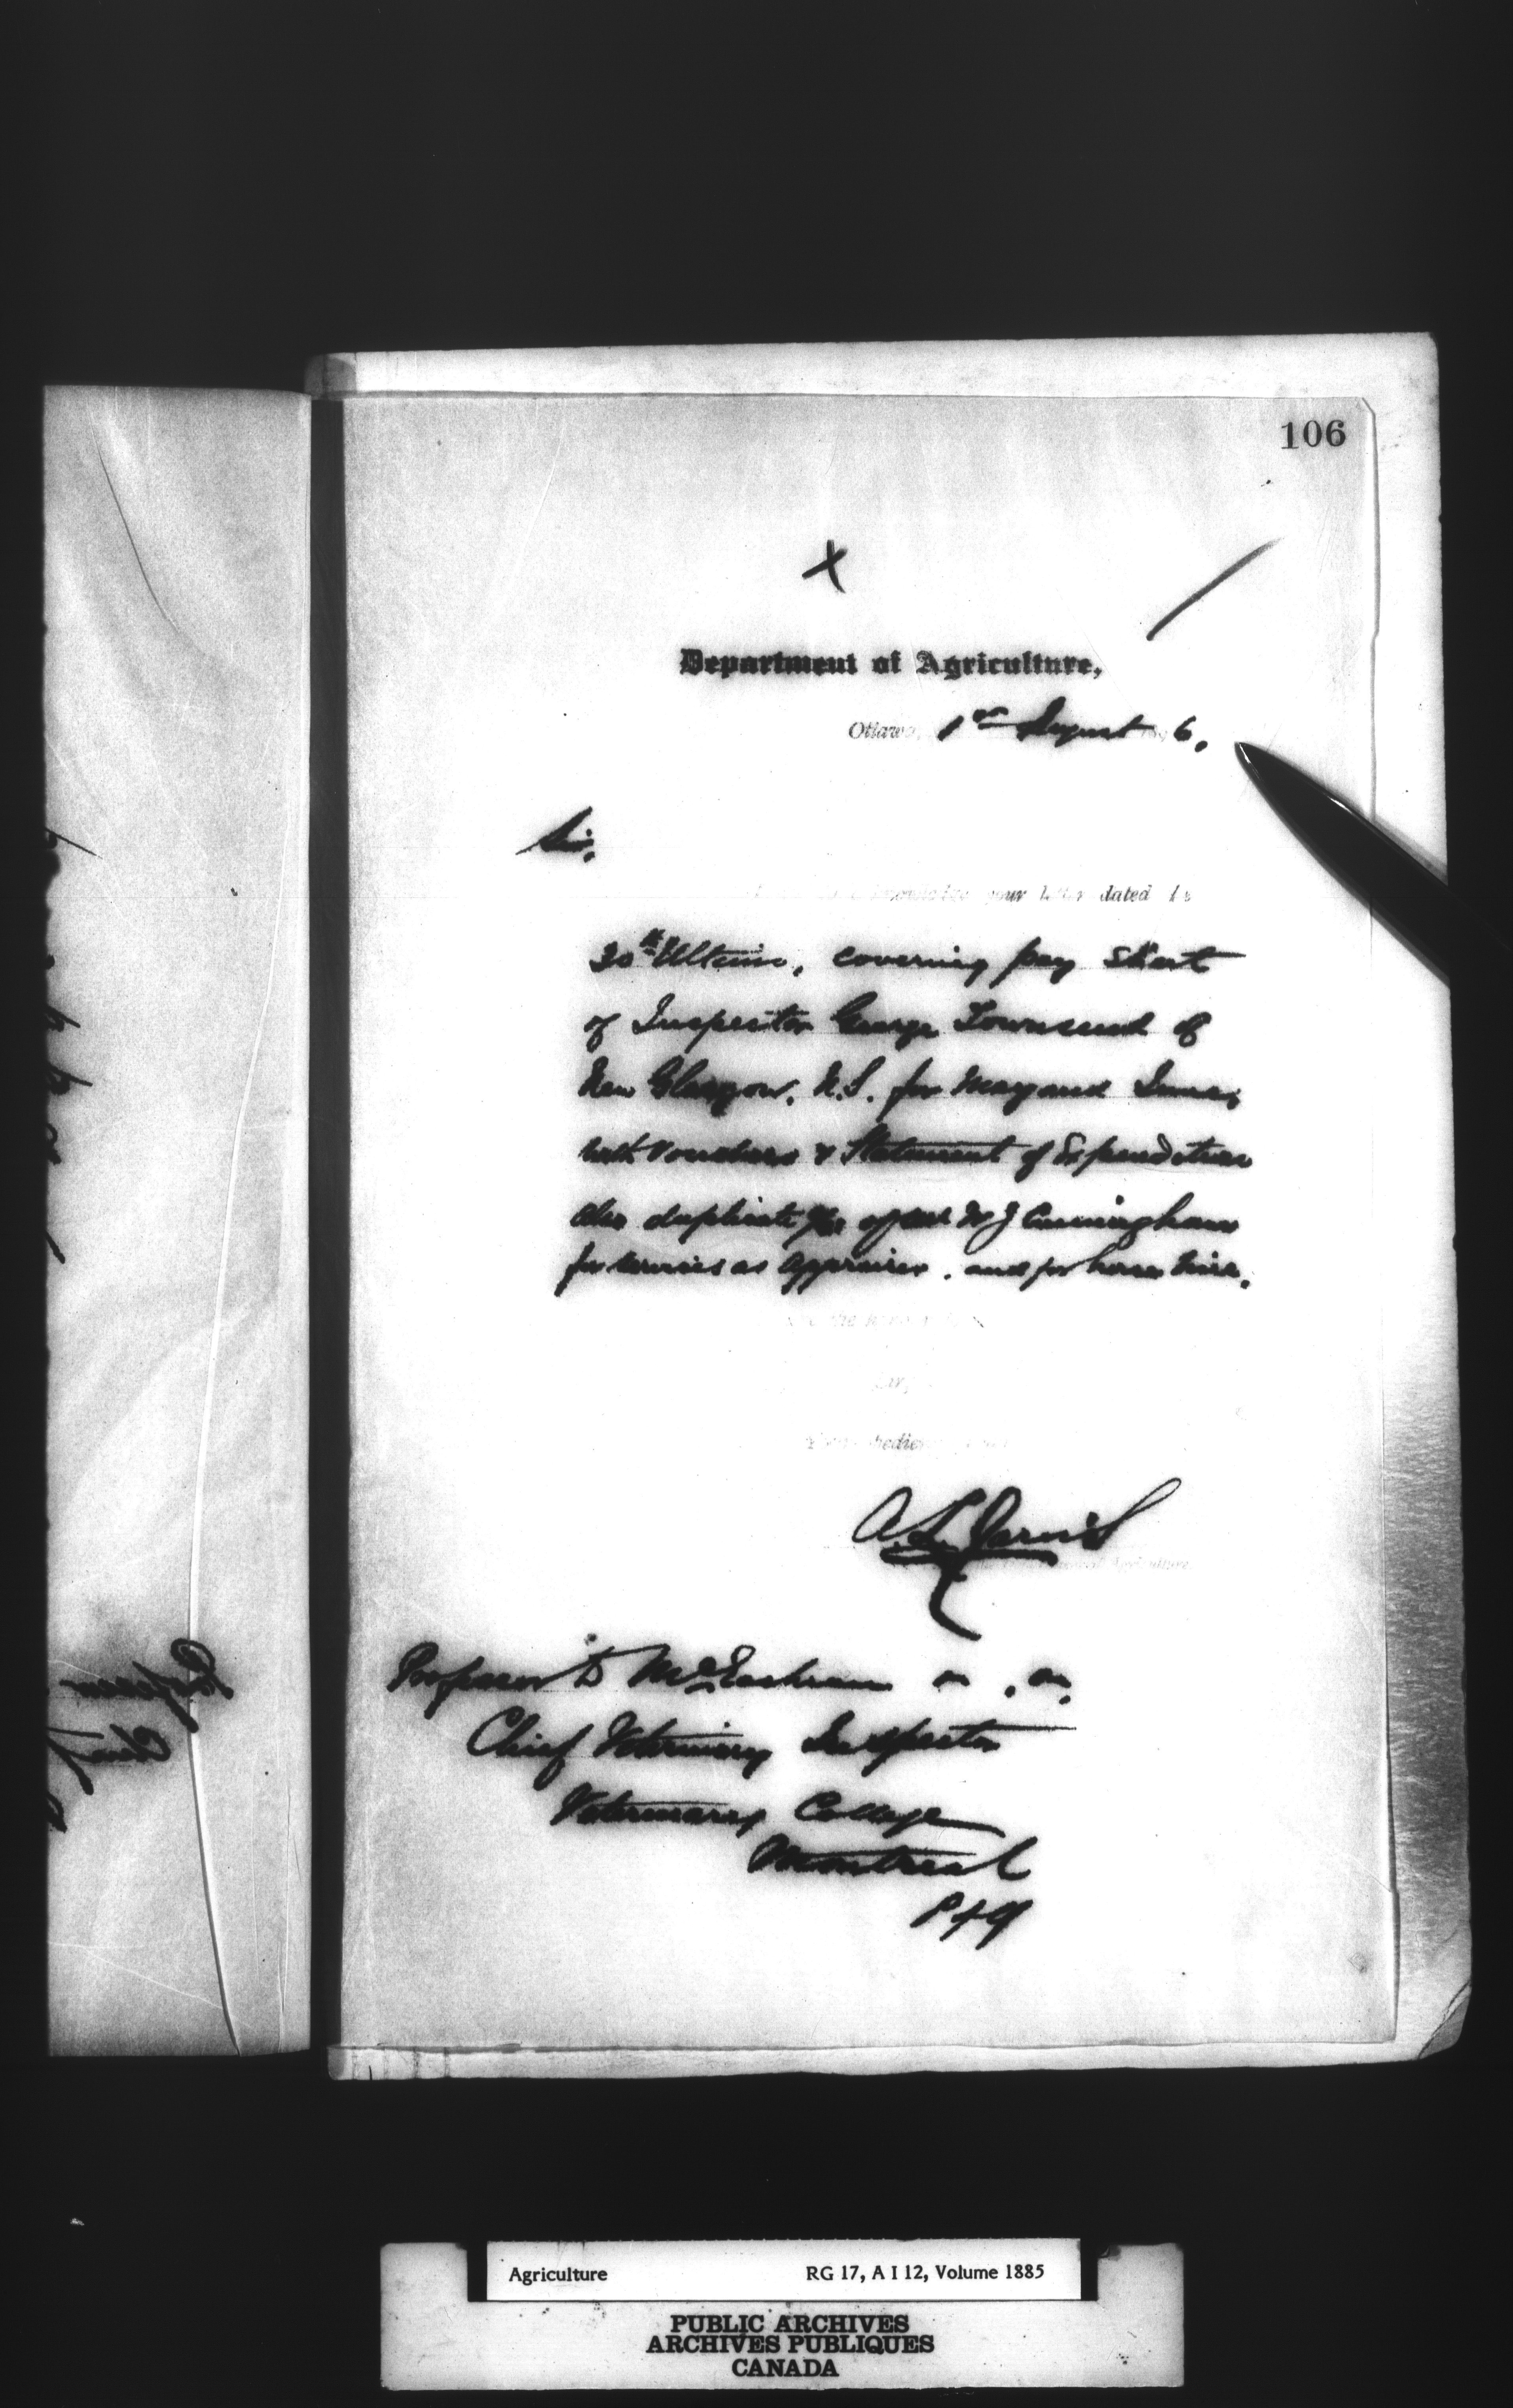 106
X
Department of Agriculture,
Ottawa, 1st August 6.
Sir,
your letter dated
30th Ultimo, covering pay sheet
of Inspector George Townsend of
New Glasgow, N.S. for May and June,
with Vouchers & Statement of Expenditure
also duplicate of W J Cunningham
for services as appraiser. and for horse hire.
A. L. Jarvis
Professor D McEachran
Chief Veterinary Inspector
Veterinary College
Montreal
P of Q
Agriculture RG 17, A I 12, Volume 1885
PUBLIC ARCHIVES
ARCHIVES PUBLIQUES
CANADA